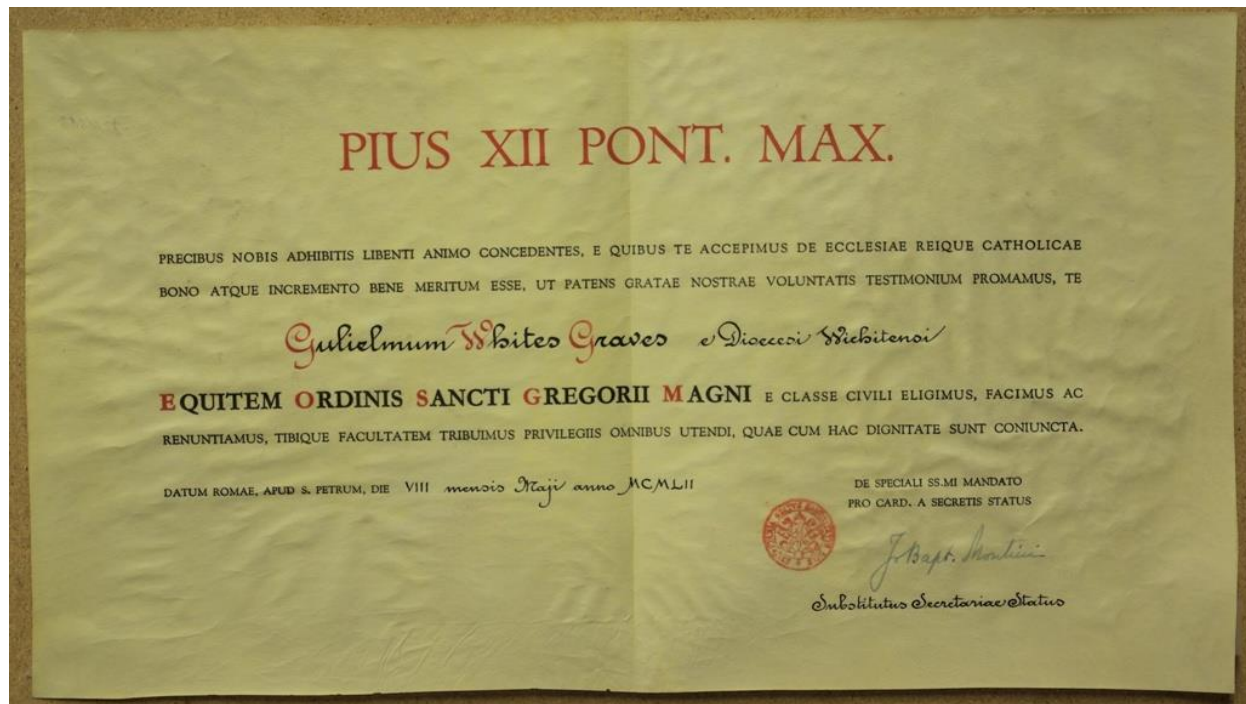 PIUS XII PONT. MAX.
PRECIBUS NOBIS ADHIBITIS LIBENTI ANIMO CONCEDENTES, E QUIBUS TE ACCEPIMUS DE ECCLESIAE REIQUE CATHOLICAE
BONO ATQUE INCREMENTO BENE MERITUM ESSE, UT PATENS GRATAE NOSTRAE VOLUNTATIS TESTIMONIUM PROMAMUS, TE
Gulielmum Whites Graves e Dioecesi Wichitensi
EQUITEM ORDINIS SANCTI GREGORII MAGNI E CLASSE CIVILI ELIGIMUS, FACIMUS AC
RENUNTIAMUS, TIBIQUE FACULTATEM TRIBUIMUS PRIVILEGIIS OMNIBUS UTENDI, QUAE CUM HAC DIGNITATE SUNT CONIUNCTA.
DATUM ROMAE, APUD S. PETRUM, DIE VIII mensis Maji anno MCMLII
DE SPECIALI SS.MI MANDATO
PRO CARD. A SECRETIS STATUS
J. Bapt. Montini
Substitutus Secretariae Status